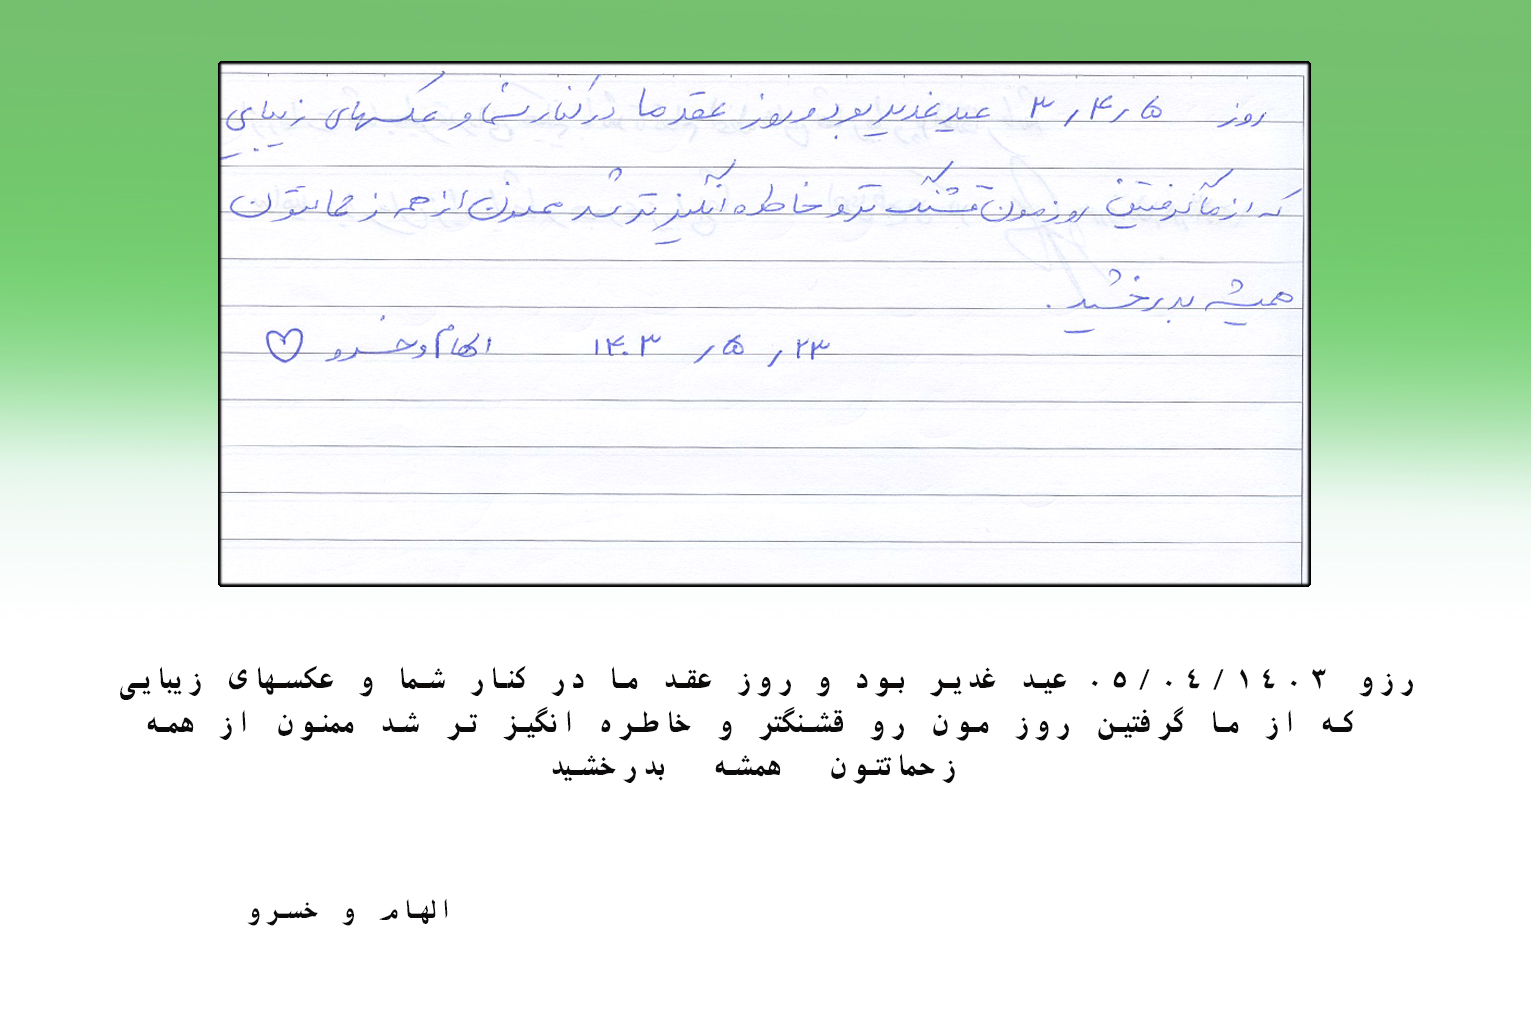 روز ۵ر۴ر۳ عید غدیر بود و روز عقد ما در کنار شما و عکسهای زیبایی
که از ما گرفتین روزمون قشنگ تر و خاطره انگیز تر شد ممنون از همه زحماتتون
همیشه بدرخشید.
۲۳ر ۵ر ۱۴۰۳ الهام و خسرو ♡
رزو ۰۵/۰٤/۱٤۰۳ عید غدیر بود و روز عقد ما در کنار شما و عکسهای زیبایی
که از ما گرفتین روز مون رو قشنگتر و خاطره انگیز تر شد ممنون از همه
زحماتتون همشه بدرخشید
الهام و خسرو